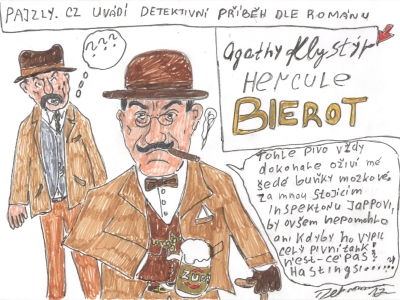 PAJZLY.CZ UVÁDÍ DETEKTIVNÍ PŘÍBĚH DLE ROMÁNU
Agathy Klystýr
HERCULE
BIEROT
????
Tohle pivo vždy
dokonale oživí mé
šedé buňky mozkové.
Za mnou stojícím
inspektoru Jappovi,
by ovšem nepomohlo
ani kdyby ho vypil
celý pivní tank!
N'est-ce pas?
Hastingsi